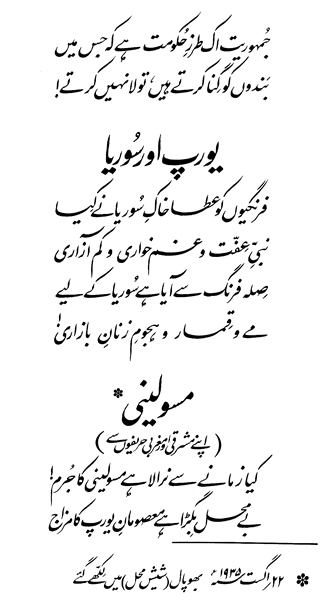 جمہوریت اک طرزِ حکومت ہے کہ جس میں
بندوں کو گنا کرتے ہیں، تولا نہیں کرتے!
یورپ اور سُوریا
فرنگیوں کو عطا خاکِ سُوریا نے کیا
نبیِّ عِفّت و غم خواری و کم آزاری
صِلہ فرنگ سے آیا ہے سُوریا کے لیے
مے و قِمار و ہجومِ زنانِ بازاری!
مسولینی*
(اپنے مشرقی اور مغربی حریفوں سے)
کیا زمانے سے نرالا ہے مسولینی کا جُرم!
بے محل بِگڑا ہے معصومانِ یورپ کا مزاج
* ۲۲/اگست ۱۹۳۵ء بھوپال (شیش محل) میں لکھے گئے